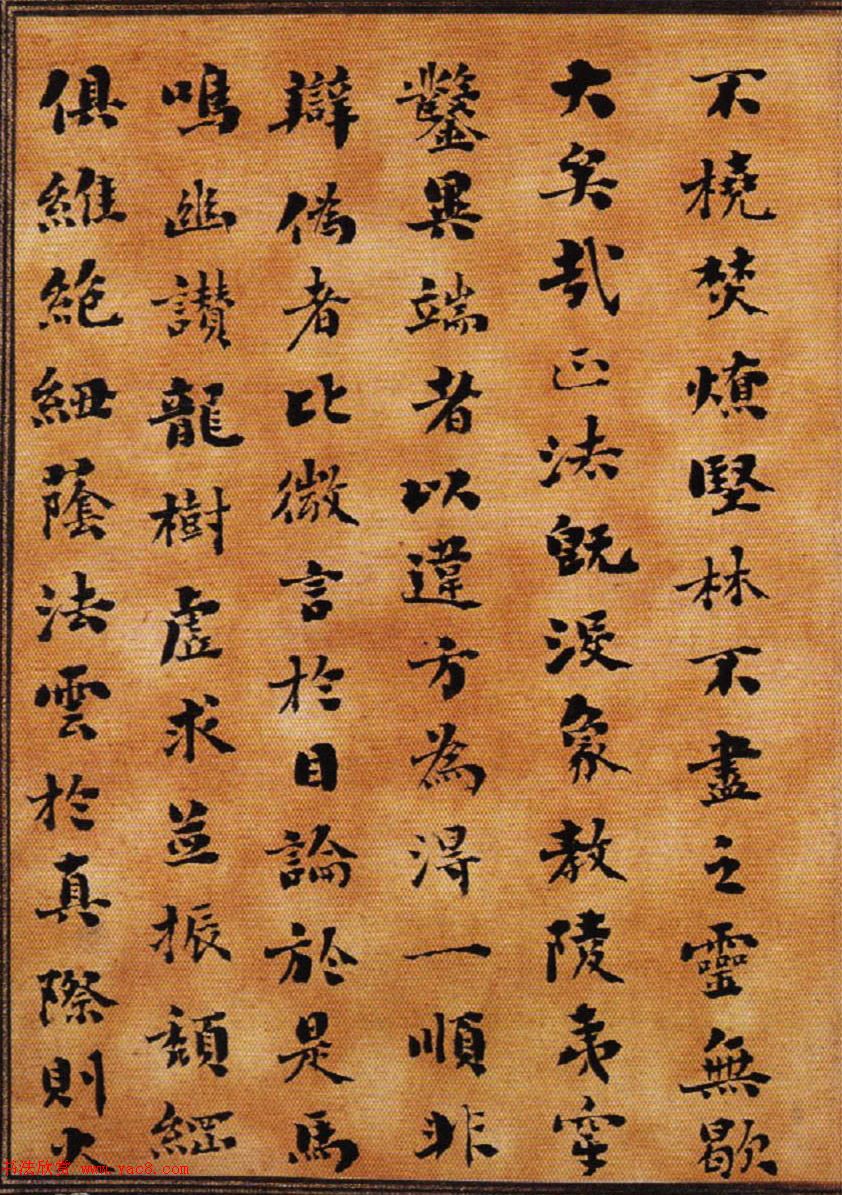 不橈焚燎堅林不盡之靈無歇
大矣哉正法既沒象教陵夷穿
鑿異端者以違方為得一順非
辯偽者比微言於目論於是馬
鳴幽讃龍樹虛求並振頹綱
俱維絕紐蔭法雲於真際則火
书法欣赏 www.yac8.com